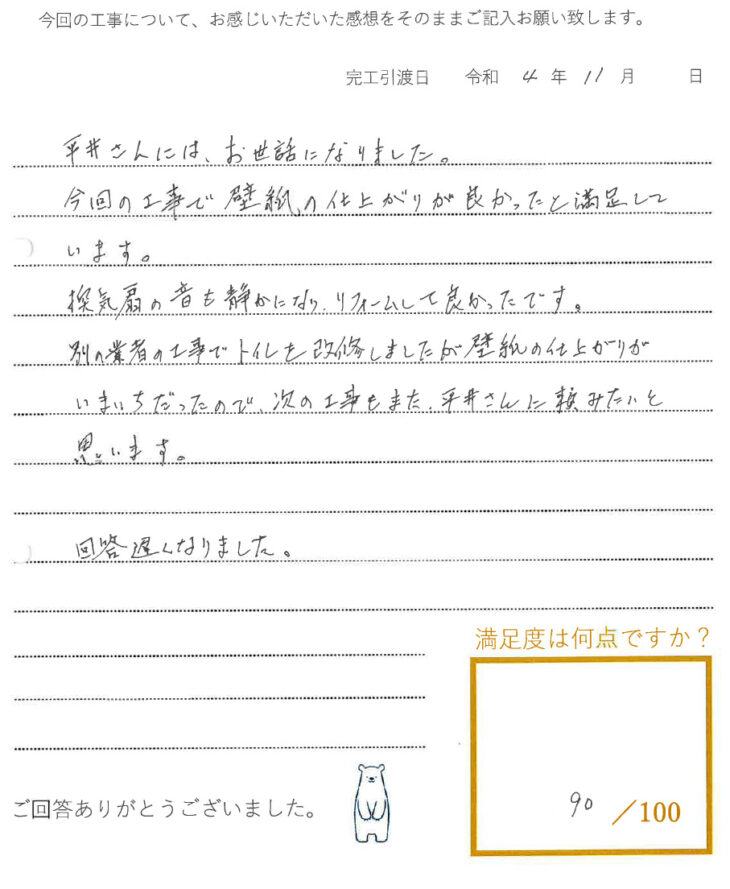 今回の工事について、お感じいただいた感想をそのままご記入お願い致します。
完工引渡日 令和 4 年 11 月 日
平井さんには、お世話になりました。
今回の工事で壁紙の仕上がりが良かったと満足して
います。
換気扇の音も静かになり、リフォームして良かったです。
別の業者の工事でトイレを改修しましたが壁紙の仕上がりが
いまいちだったので、次の工事もまた、平井さんに頼みたいと
思います。
回答遅くなりました。
満足度は何点ですか？
90 ／100
ご回答ありがとうございました。